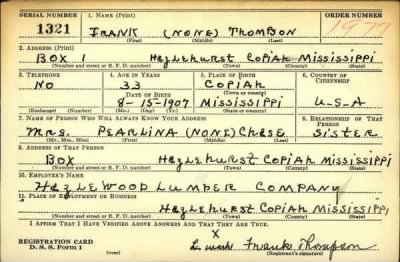 SERIAL NUMBER 1. NAME (Print) ORDER NUMBER
1321 FRANK (NONE) THOMBSON 1977
(First) (Middle) (Last)
2. ADDRESS (Print)
BOX 1 HAZLEHURST COPIAH MISSISSIPPI
(Number and street or R. F. D. number) (Town) (County) (State)
3. TELEPHONE 4. AGE IN YEARS 5. PLACE OF BIRTH 6. COUNTRY OF CITIZENSHIP
NO 33 COPIAH
DATE OF BIRTH (Town or county)
8-15-1907 MISSISSIPPI U-S-A
(Exchange) (Number) (Mo.) (Day) (Yr.) (State or country)
7. NAME OF PERSON WHO WILL ALWAYS KNOW YOUR ADDRESS 8. RELATIONSHIP OF THAT PERSON
MRS. PEARLINA (NONE) CHASE SISTER
(Mr., Mrs., Miss) (First) (Middle) (Last)
9. ADDRESS OF THAT PERSON
BOX HAZLEHURST COPIAH MISSISSIPPI
(Number and street or R. F. D. number) (Town) (County) (State)
10. EMPLOYER'S NAME
HAZLEWOOD LUMBER COMPANY
11. PLACE OF EMPLOYMENT OR BUSINESS
HAZLEHURST COPIAH MISSISSIPPI
(Number and street or R. F. D. number) (Town) (County) (State)
I AFFIRM THAT I HAVE VERIFIED ABOVE ANSWERS AND THAT THEY ARE TRUE.
X
REGISTRATION CARD
D. S. S. Form 1 Frank Thompson
(Registrant's signature)